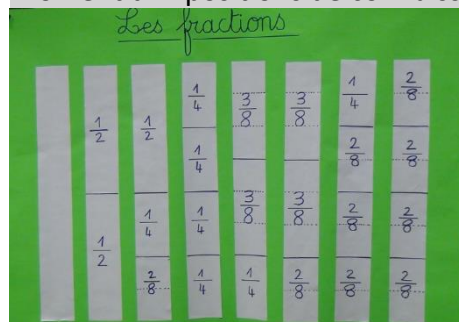 Les fractions
1/2 1/2
1/2 1/4 2/8
1/4 1/4 1/4 1/4
3/8 3/8 1/4
3/8 3/8 2/8
1/4 2/8 2/8 2/8
2/8 2/8 2/8 2/8